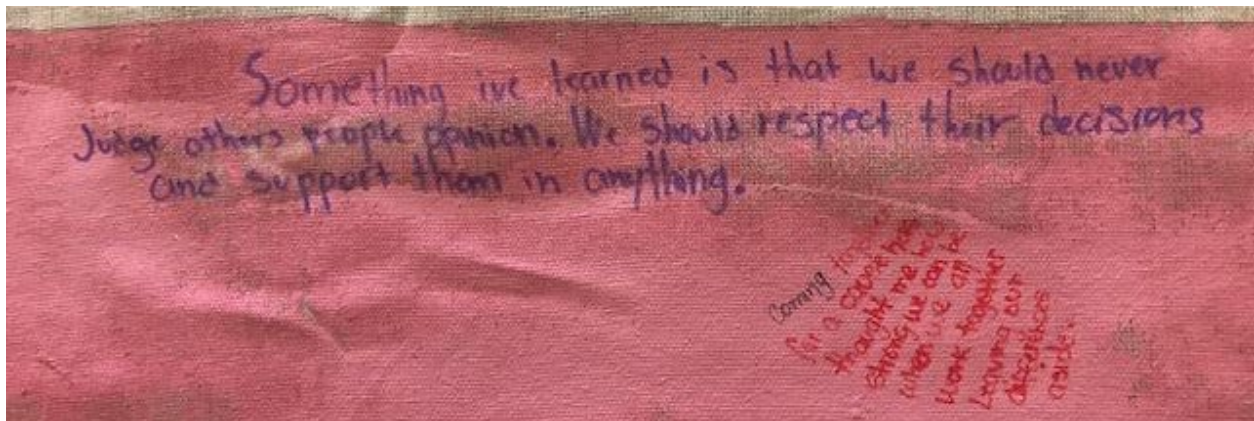 Something ive learned is that we should never
Judge others people opinion. We should respect their decisions
and support them in anything.
Coming
for a cause has
thought me how
strong we can be
when we all
work together
leaving our
differences
aside.